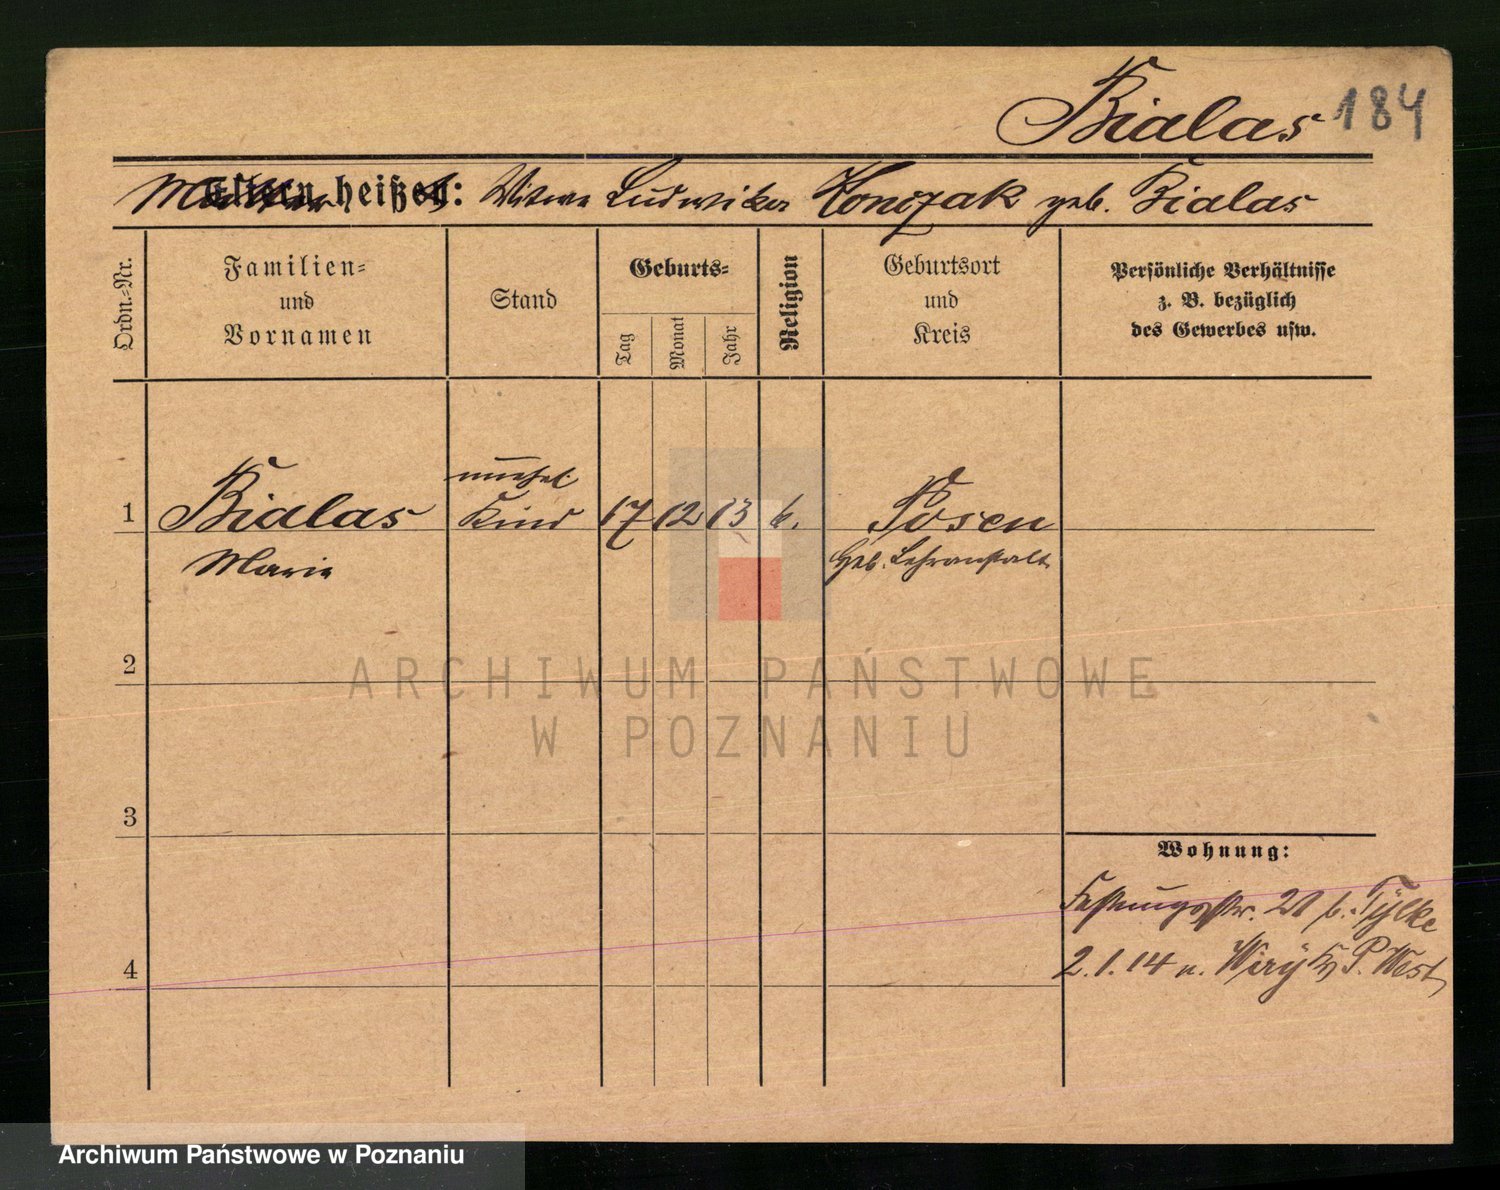 Bialas 184
Mutter heißt: Witwe Ludwika Konczak geb. Bialas
Ordn.-Nr.
Familien-
und
Vornamen
Stand
Geburts-
Tag
Monat
Jahr
Religion
Geburtsort
und
Kreis
Persönliche Verhältnisse
z. B. bezüglich
des Gewerbes usw.
unehel.
1 Bialas Kind 17 12 13 k. Posen
Marie Heb. Lehranstalt
2
ARCHIWUM PAŃSTWOWE
W POZNANIU
3
Wohnung:
Festungsstr. 21 b. Tylke
4 2.1.14 n. Wiry Kr. P. West
Archiwum Państwowe w Poznaniu